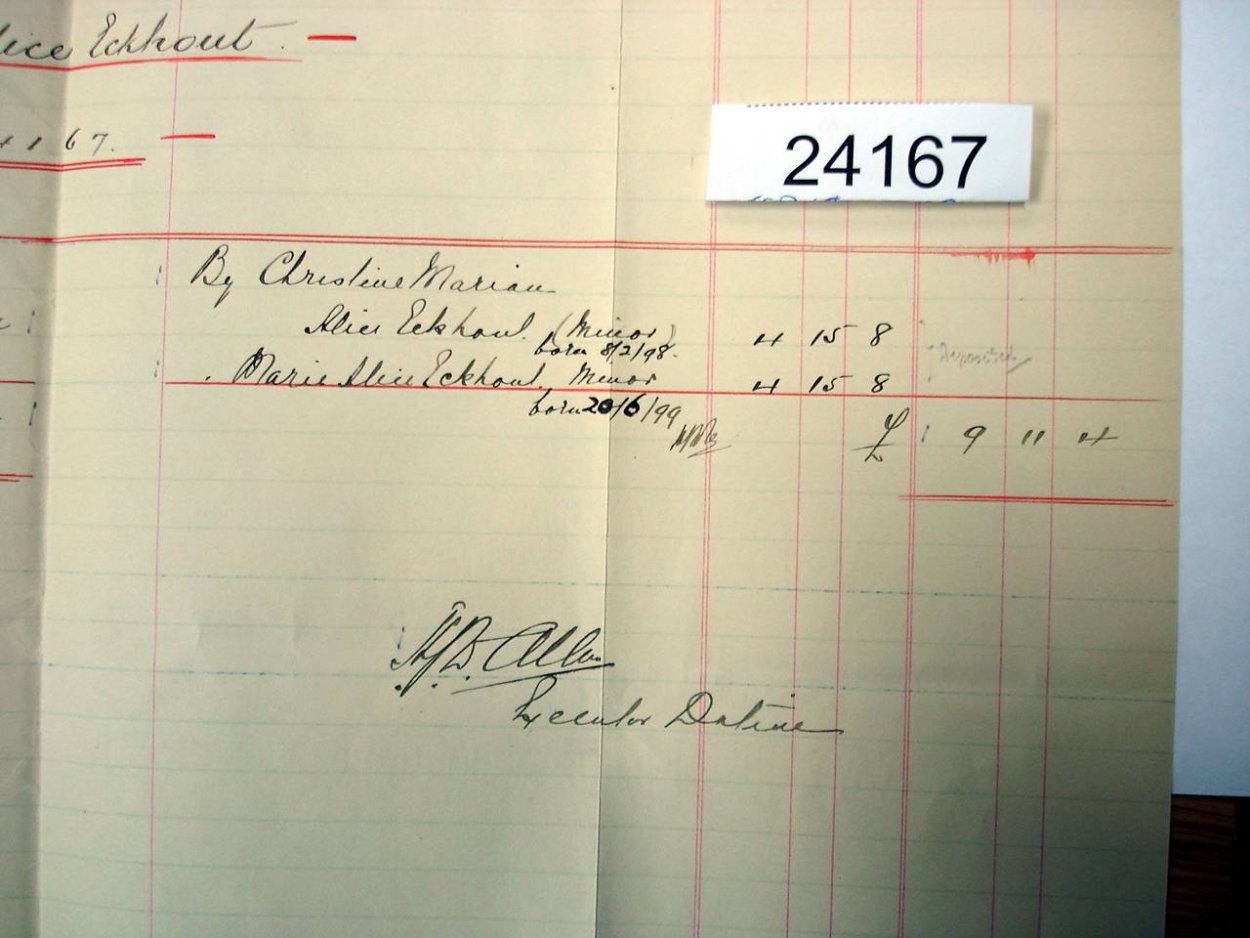 lice Eckhout. —
4167. —
24167
By Christine Marian
Alice Eckhout. (Minor) 4 15 8
born 8/2/98. Deposited
. Marie Alice Eckhout, Minor 4 15 8
born 20/6/99
£ 9 11 4
Allen
Executor Dative